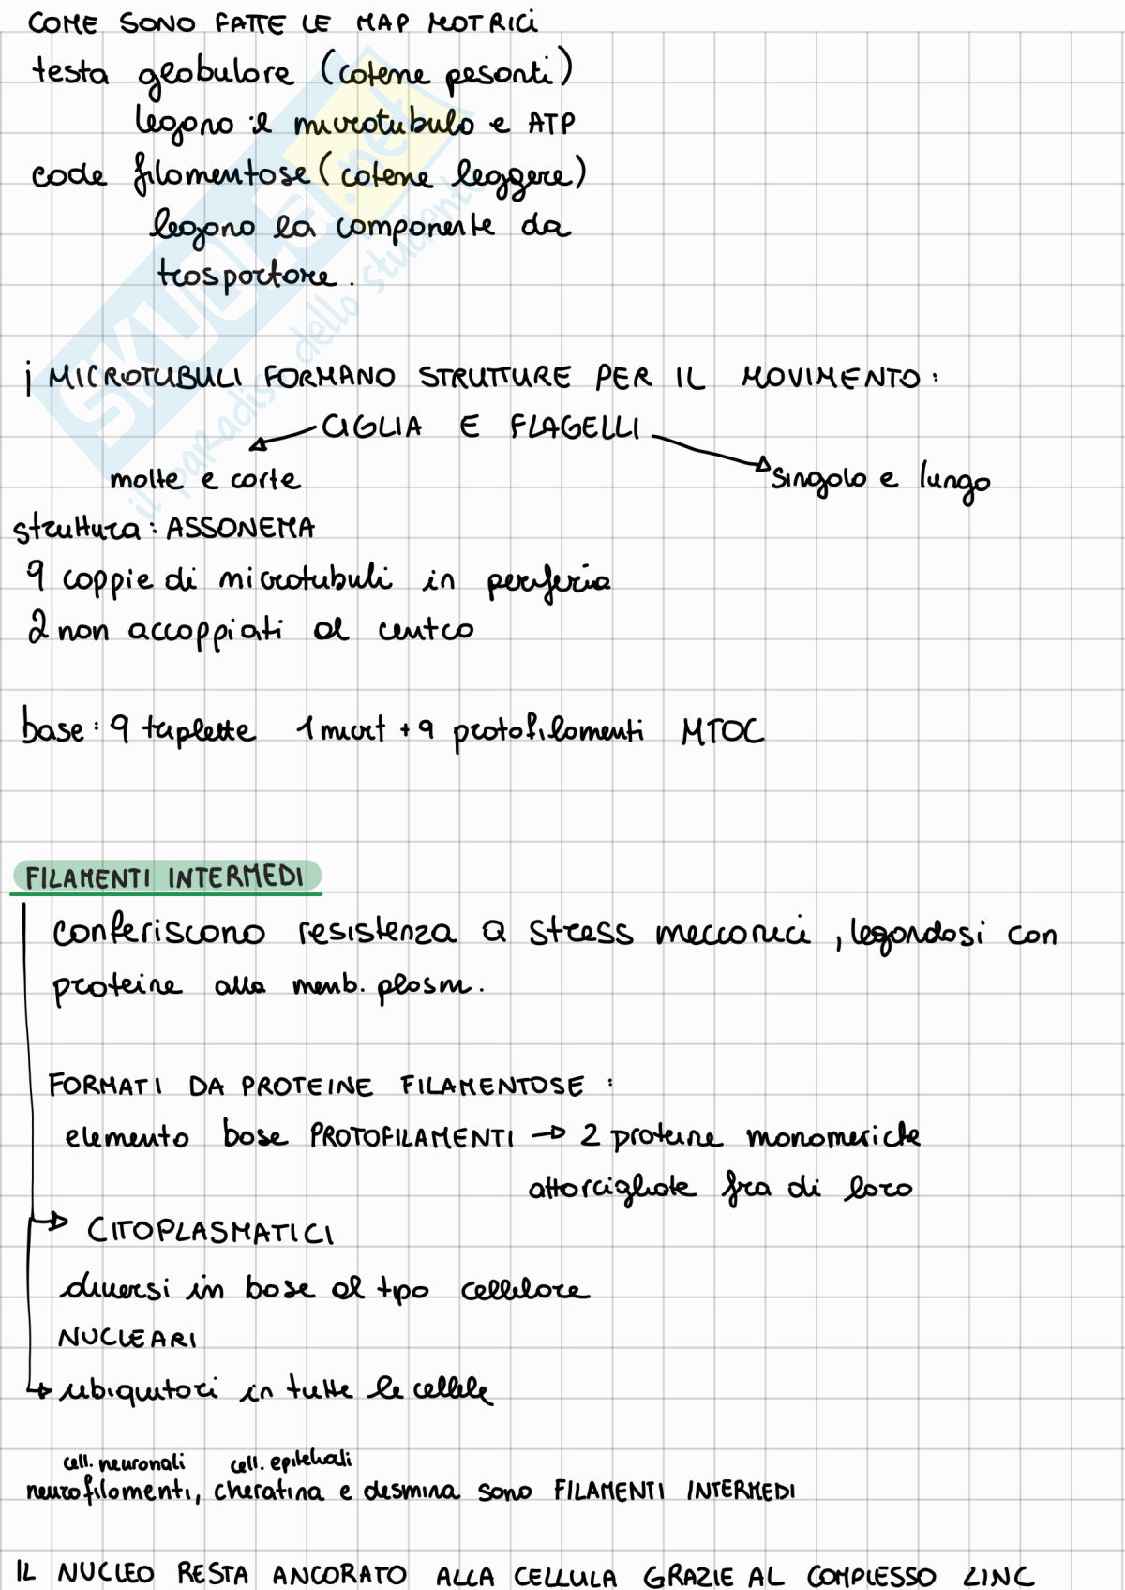 COME SONO FATTE LE MAP MOTRICI
testa globulare (catene pesanti)
legano il microtubulo e ATP
code filamentose (catene leggere)
legano la componente da
trasportare.
i MICROTUBULI FORMANO STRUTTURE PER IL MOVIMENTO:
CIGLIA E FLAGELLI
molte e corte
singolo e lungo
struttura: ASSONEMA
9 coppie di microtubuli in periferia
2 non accoppiati al centro
base: 9 triplette 1 micrt + 9 protofilamenti MTOC
FILAMENTI INTERMEDI
conferiscono resistenza a stress meccanici, legandosi con
proteine alla memb. plasm.
FORMATI DA PROTEINE FILAMENTOSE:
elemento base PROTOFILAMENTI → 2 proteine monomeriche
attorcigliate fra di loro
CITOPLASMATICI
diversi in base al tipo cellulare
NUCLEARI
ubiquitari in tutte le cellule
cell. neuronali cell. epiteliali
neurofilamenti, cheratina e desmina sono FILAMENTI INTERMEDI
IL NUCLEO RESTA ANCORATO ALLA CELLULA GRAZIE AL COMPLESSO LINC
SKUOLA.net
il paradiso dello studente